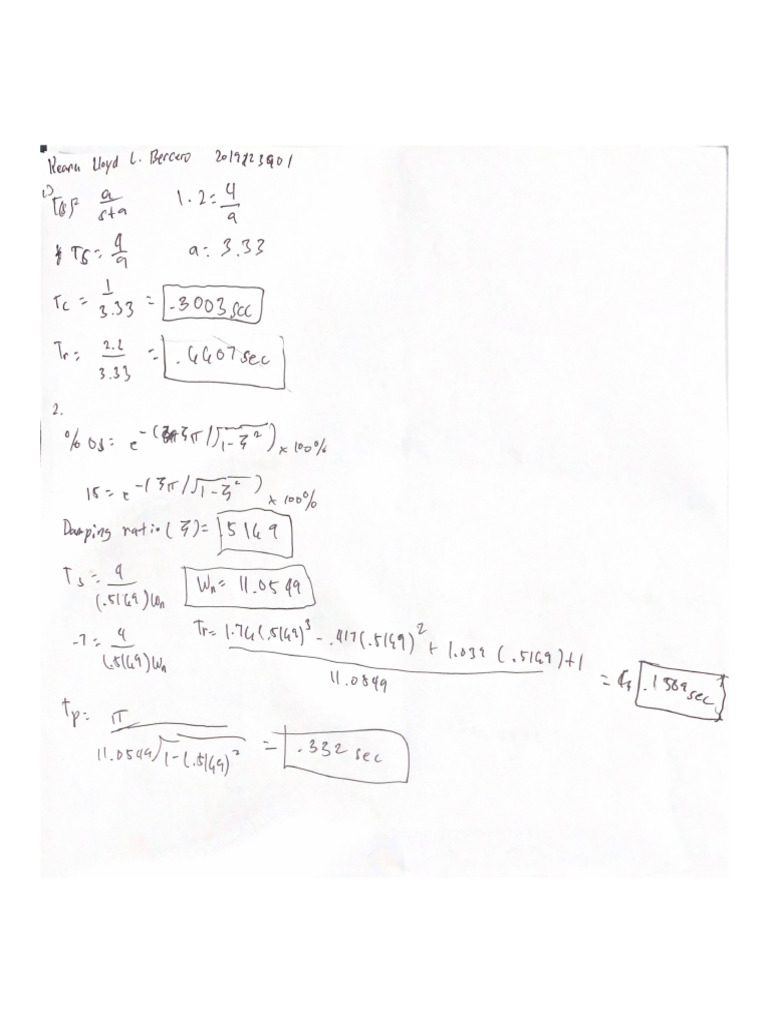 Keanu Lloyd L. Bercero 201912
1.) T(s)= a/(s+a) 1.2 = 4/a
Ts = 4/a a = 3.33
Tc = 1/3.33 = .3003 sec
Tr = 2.2/3.33 = .6607 sec
2.
% OS = e^-(ζπ/√(1-ζ²)) × 100%
15 = e^-(ζπ/√(1-ζ²)) × 100%
Damping ratio (ζ) = .5169
Ts = 4/((.5169)Wn) Wn = 11.0549
.7 = 4/((.5169)Wn) Tr = (1.76(.5169)³ - .417(.5169)² + 1.039 (.5169) + 1)/11.0549 = .1589 sec
tp = π/(11.0549√(1-(.5169)²)) = .332 sec